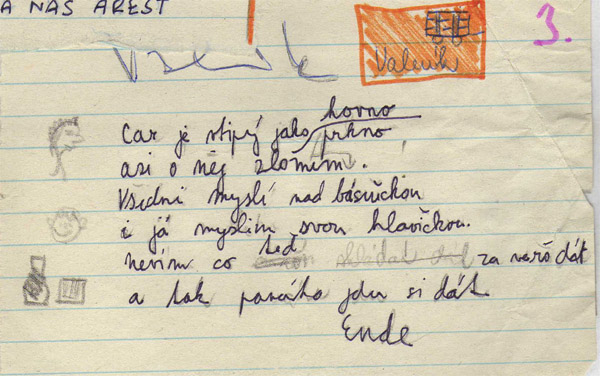 A NÁS AREST
3.
hovno
Car je vtipý jako prkno
asi o něj zlomim.
Všichni myslí nad básničkou
i já myslim svou hlavičkou.
nevim co teď skládat dál za verš dát
a tak panáka jdu si dát
Ende